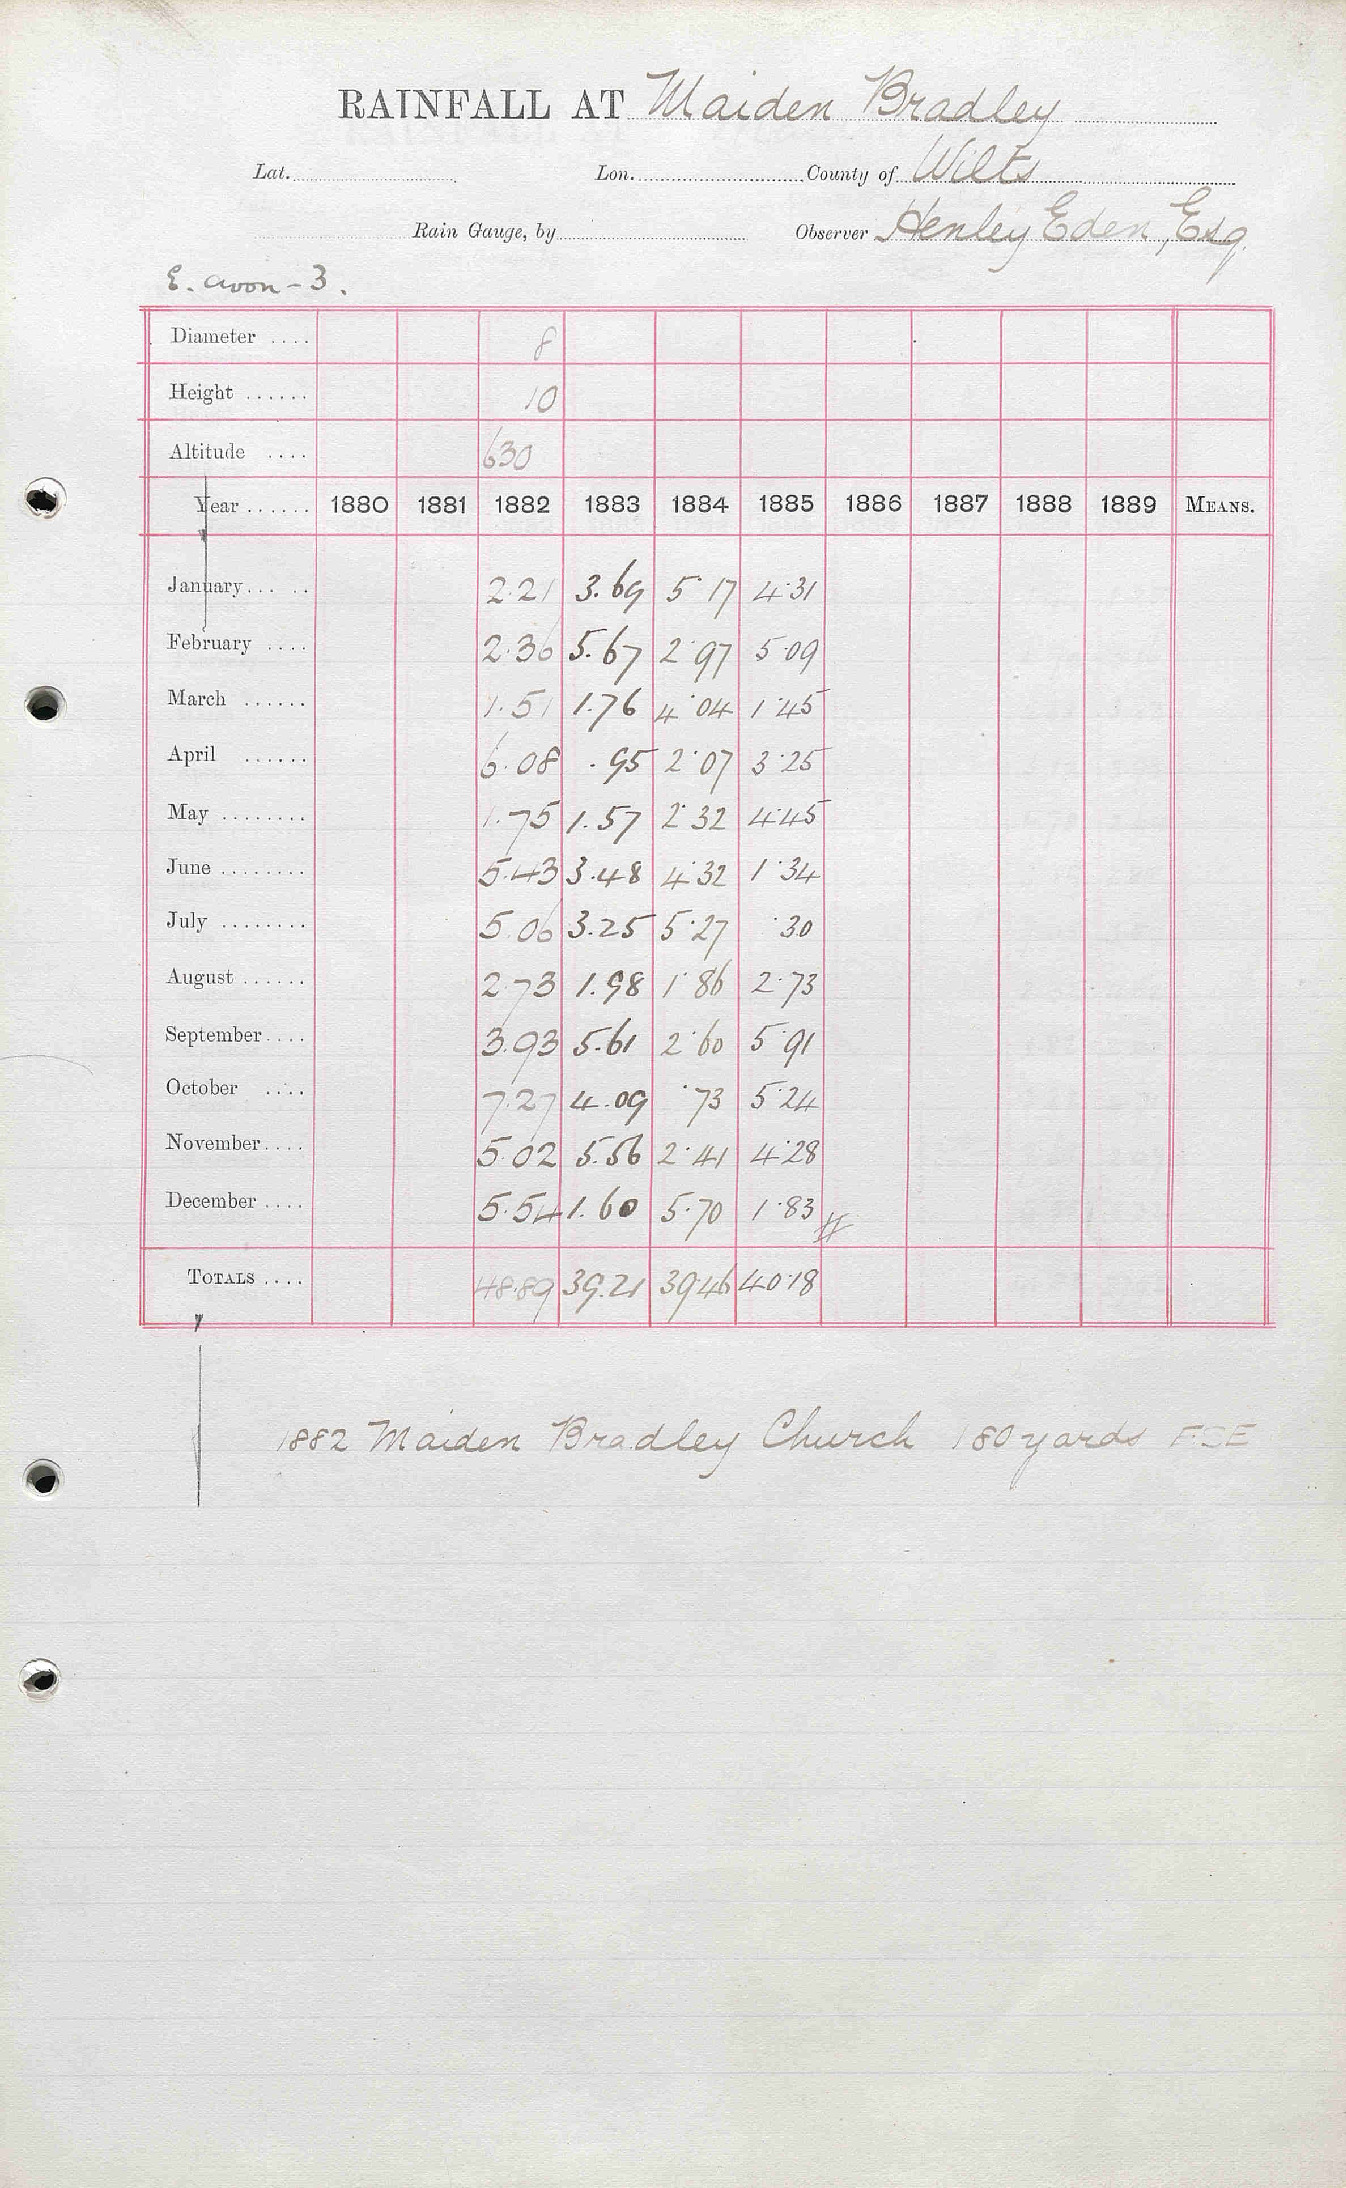 RAINFALL AT Maiden Bradley
Lat. Lon. County of Wilts
Rain Gauge, by Observer Henley Eden, Esq.
E. Avon - 3.
Diameter .... 8
Height ...... 10
Altitude .... 630
Year ...... 1880 1881 1882 1883 1884 1885 1886 1887 1888 1889 MEANS.
January... .. 2.21 3.69 5.17 4.31
February .... 2.36 5.67 2.97 5.09
March ...... 1.51 1.76 4.04 1.45
April ...... 6.08 .95 2.07 3.25
May ........ 1.75 1.57 2.32 4.45
June ........ 5.43 3.48 4.32 1.34
July ........ 5.06 3.25 5.27 .30
August ...... 2.73 1.98 1.86 2.73
September.... 3.93 5.61 2.60 5.91
October .... 7.27 4.09 .73 5.24
November.... 5.02 5.56 2.41 4.28
December .... 5.54 1.60 5.70 1.83
TOTALS .... 48.89 39.21 39.46 40.18
1882 Maiden Bradley Church 180 yards ESE